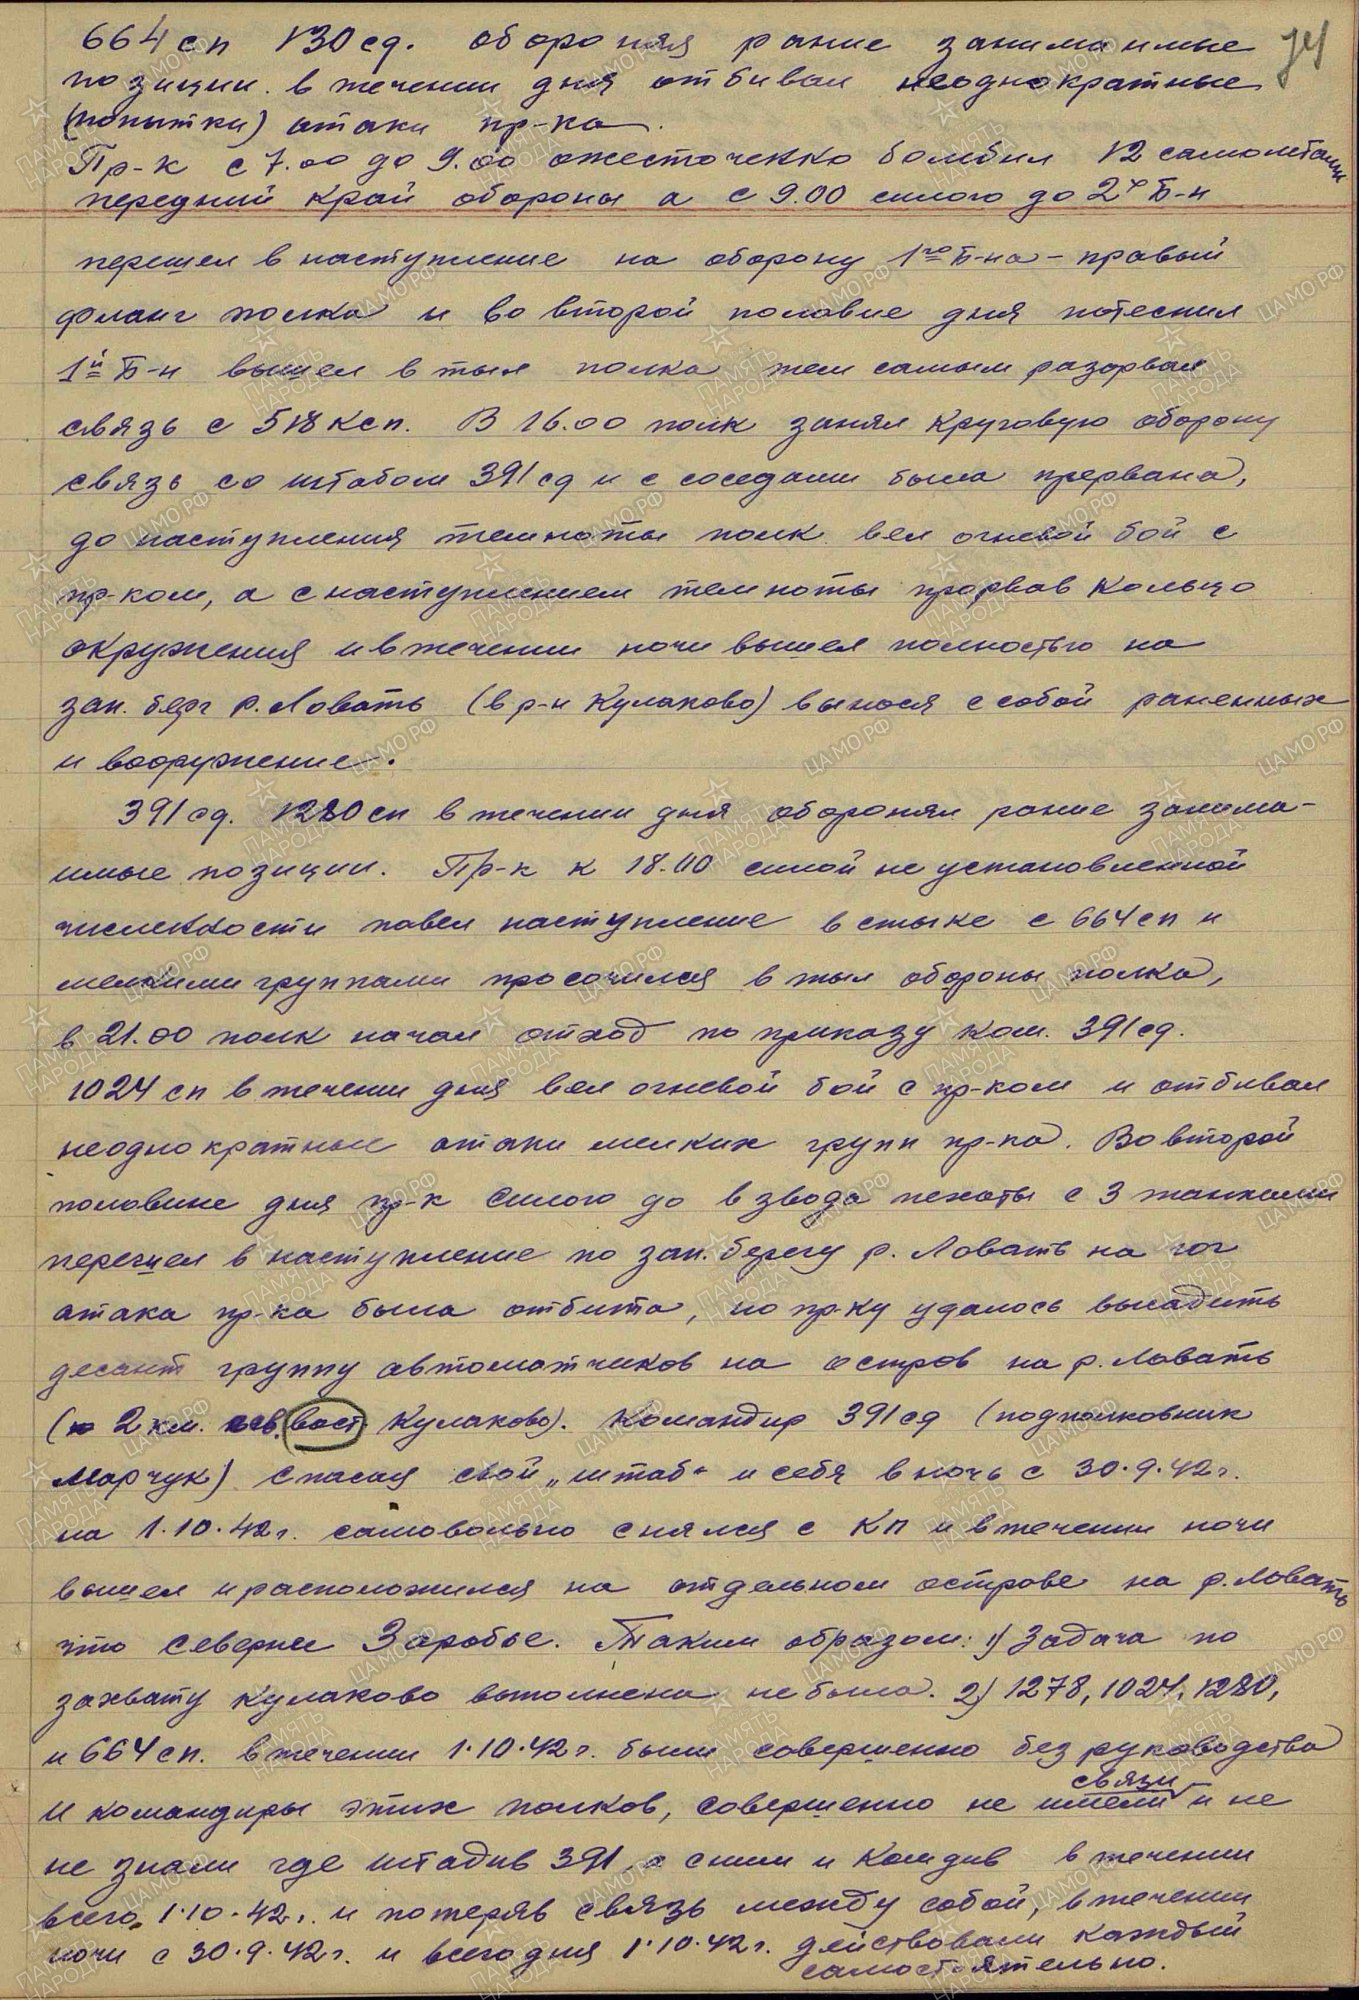 664 сп 130 сд. обороняя ранее занимаимые
позиции в течении дня отбивал неоднократные
(попытки) атаки пр-ка.
Пр-к с 7.00 до 9.00 ожесточенно бомбил 12 самолетами
передний край обороны а с 9.00 силою до 2х Б-н
перешел в наступление на оборону 1го Б-на - правый
фланг полка и во второй половие дня потеснил
1й Б-н вышел в тыл полка тем самым разорвал
связь с 518 ксп. В 16.00 полк занял круговую оборону
связь со штабом 391 сд и с соседями была прервана,
до наступления темноты полк вел огневой бой с
пр-ком, а с наступлением темноты прорвав кольцо
окружения и в течении ночи вышел полностью на
зап. берг р. Ловать (в р-н Кулаково) вынося с собой раненных
и вооружение.
391 сд. 1280 сп в течении дня оборонял рание занима-
имые позиции. Пр-к к 18.00 силой не установленной
численности повел наступление в стыке с 664 сп и
мелкими группами просочился в тыл обороны полка,
в 21.00 полк начал отход по приказу ком. 391 сд.
1024 сп в течении дня вел огневой бой с пр-ком и отбивал
неоднократные атаки мелких групп пр-ка. Во второй
половине дня пр-к силою до взвода пехоты с 3 танками
перешел в наступление по зап. берегу р. Ловать на юг
атака пр-ка была отбита, но пр-ку удалось высадить
десант группу автоматчиков на остров на р. Ловать
(2 км. сев. вост. Кулаково). Командир 391 сд (подполковник
Марчук) спасая свой „штаб" и себя в ночь с 30.9.42 г.
на 1.10.42 г. самовольно снялся с КП и в течении ночи
вышел и расположился на отдельном острове на р. Ловать
что севернее Заробье. Таким образом: 1) Задача по
захвату Кулаково выполнена не была. 2) 1278, 1024, 1280,
и 664 сп. в течении 1.10.42 г. были совершенно без руководства
связи
и командиры этих полков, совершенно не имели и не
не знали где штадив 391, а с ним и Комдив в течении
всего 1.10.42 г. и потеряв связь между собой, в течении
ночи с 30.9.42 г. и всего дня 1.10.42 г. действовали каждый
самостоятельно.